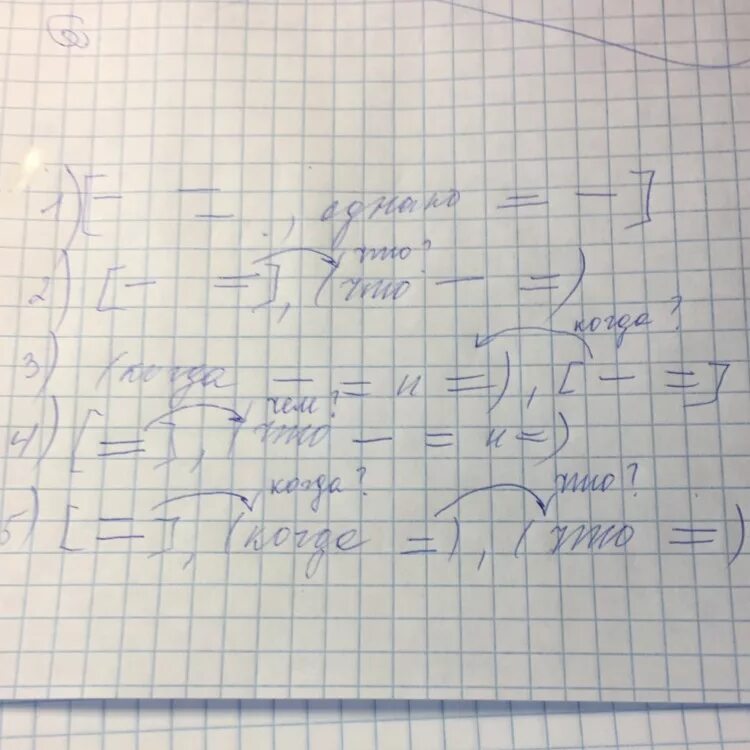 1) [— =, однако = —]
что?
2) [— =], (что — =)
когда?
3) (когда — = и =), [— =]
чем?
4) [=], (что — = и =)
когда? что?
5) [=], (когда =), (что =)